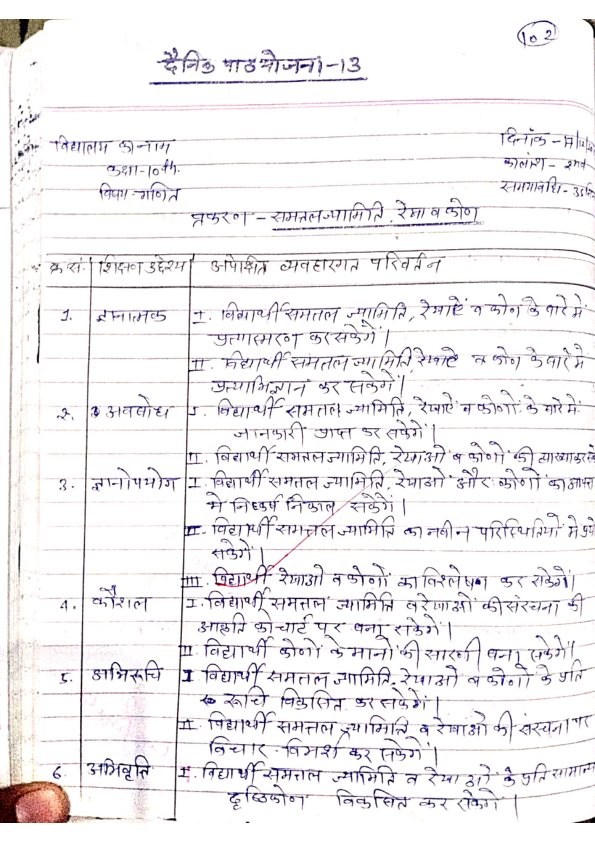 102
दैनिक पाठयोजना-13
विद्यालय का नाम
दिनांक - 17/12/
कक्षा-10th.
कालांश - 2nd
विषय-गणित
समयावधि-
प्रकरण - समतल ज्यामिति, रेखा व कोण
क्र.सं. शिक्षण उद्देश्य अपेक्षित व्यवहारगत परिवर्तन
1. ज्ञानात्मक I. विद्यार्थी समतल ज्यामिति, रेखाऐं व कोण के बारे में
प्रत्यास्मरण कर सकेगें।
II. विद्यार्थी समतल ज्यामिति, रेखाऐ व कोण के बारे मे
प्रत्याभिज्ञान कर सकेगें।
2. अवबोध I. विद्यार्थी समतल ज्यामिति, रेखाऐं व कोणों के बारे में
जानकारी प्राप्त कर सकेगें।
II. विद्यार्थी समतल ज्यामिति, रेखाओं व कोणों की व्याख्या कर सके
3. ज्ञानोपयोग I. विद्यार्थी समतल ज्यामिति, रेखाओं और कोणों का आपस
मे निष्कर्ष निकाल सकेगें।
II. विद्यार्थी समतल ज्यामिति का नवीन परिस्थितियों मे
सकेगें।
III. विद्यार्थी रेखाओं व कोणों का विश्लेषण कर सकेगें।
4. कौशल I. विद्यार्थी समतल ज्यामिति व रेखाओं की संरचना की
आकृति को चार्ट पर बना सकेगें।
II. विद्यार्थी कोणों के मानों की सारणी बना सकेगें।
5. अभिरूचि I विद्यार्थी समतल ज्यामिति, रेखाओं व कोणों के प्रति
रूचि विकसित कर सकेगें।
II. विद्यार्थी समतल ज्यामिति व रेखाओं की संरचना पर
विचार-विमर्श कर सकेगें।
6. अभिवृति I. विद्यार्थी समतल ज्यामिति व रेखाओं के प्रति सामान्य
दृष्टिकोण विकसित कर सकेगें।